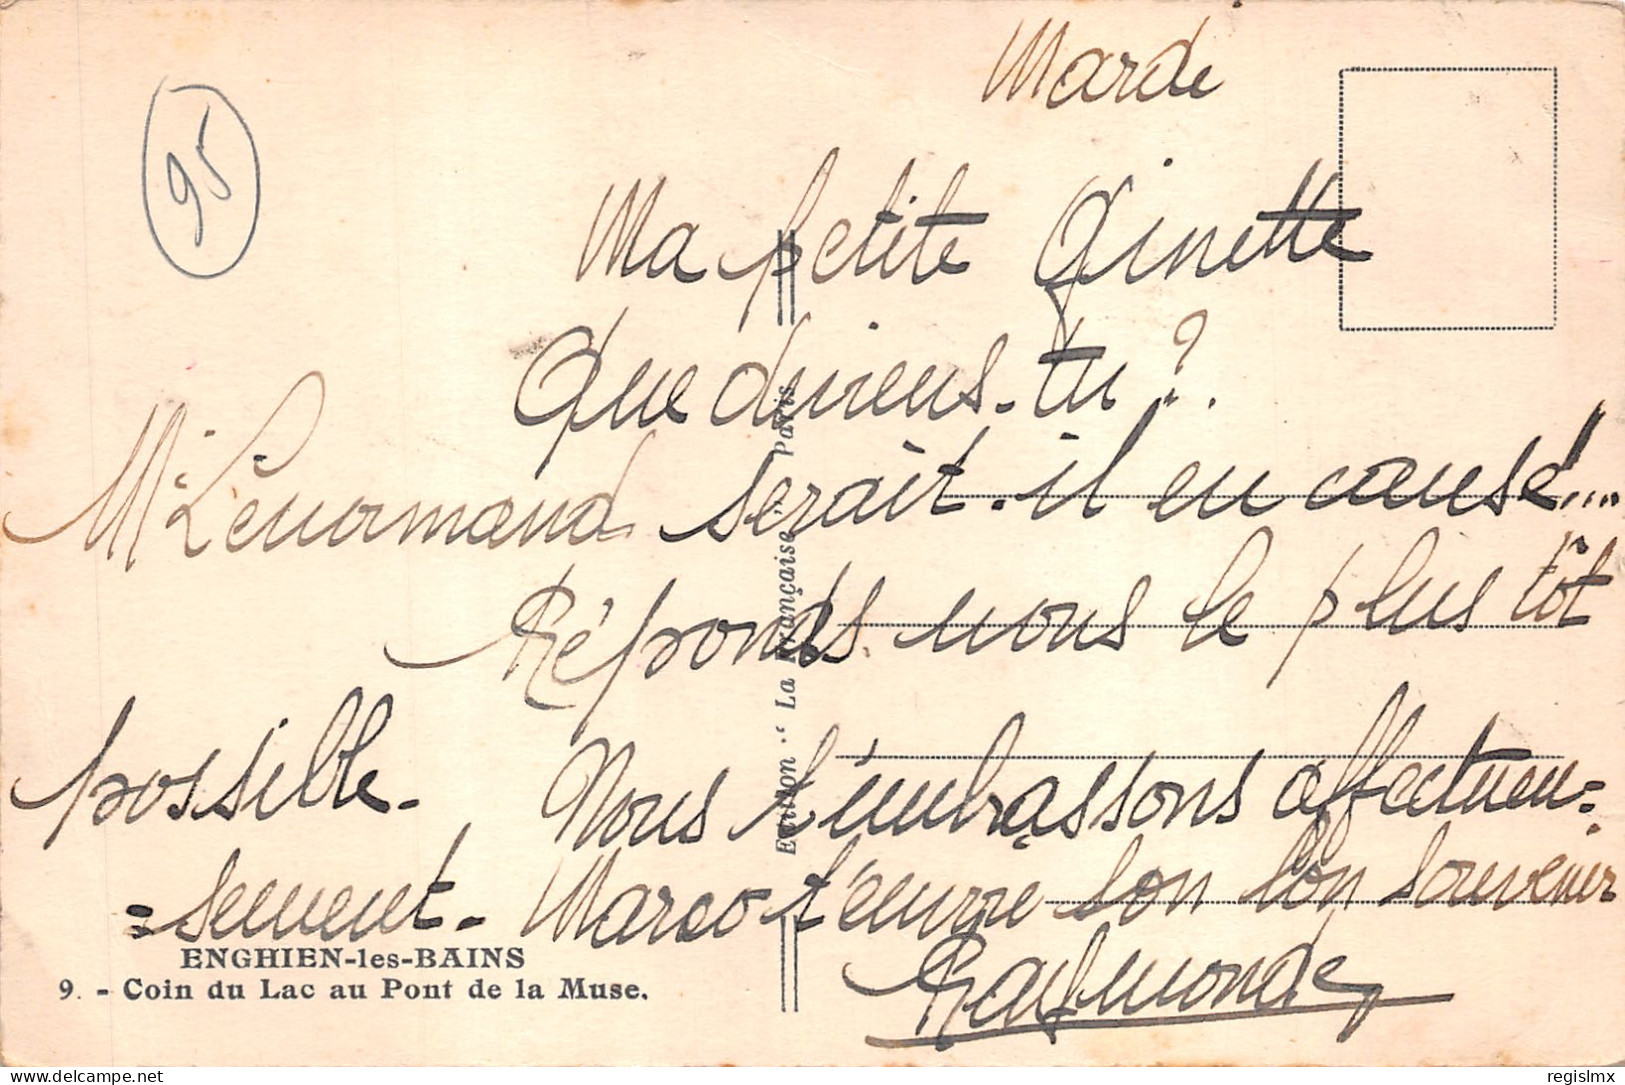 Mardi
95
Ma petite Ginette
Que deviens-tu ?.
Mr Lenormand serait-il en cause....
Réponds nous le plus tôt
possible.
Nous t'embrassons affectueu=
=sement. Marco t'envoie son bon souvenir
Raymonde
ENGHIEN-les-BAINS
9. - Coin du Lac au Pont de la Muse.
Edition " La Française, Paris
delcampe.net
regislmx